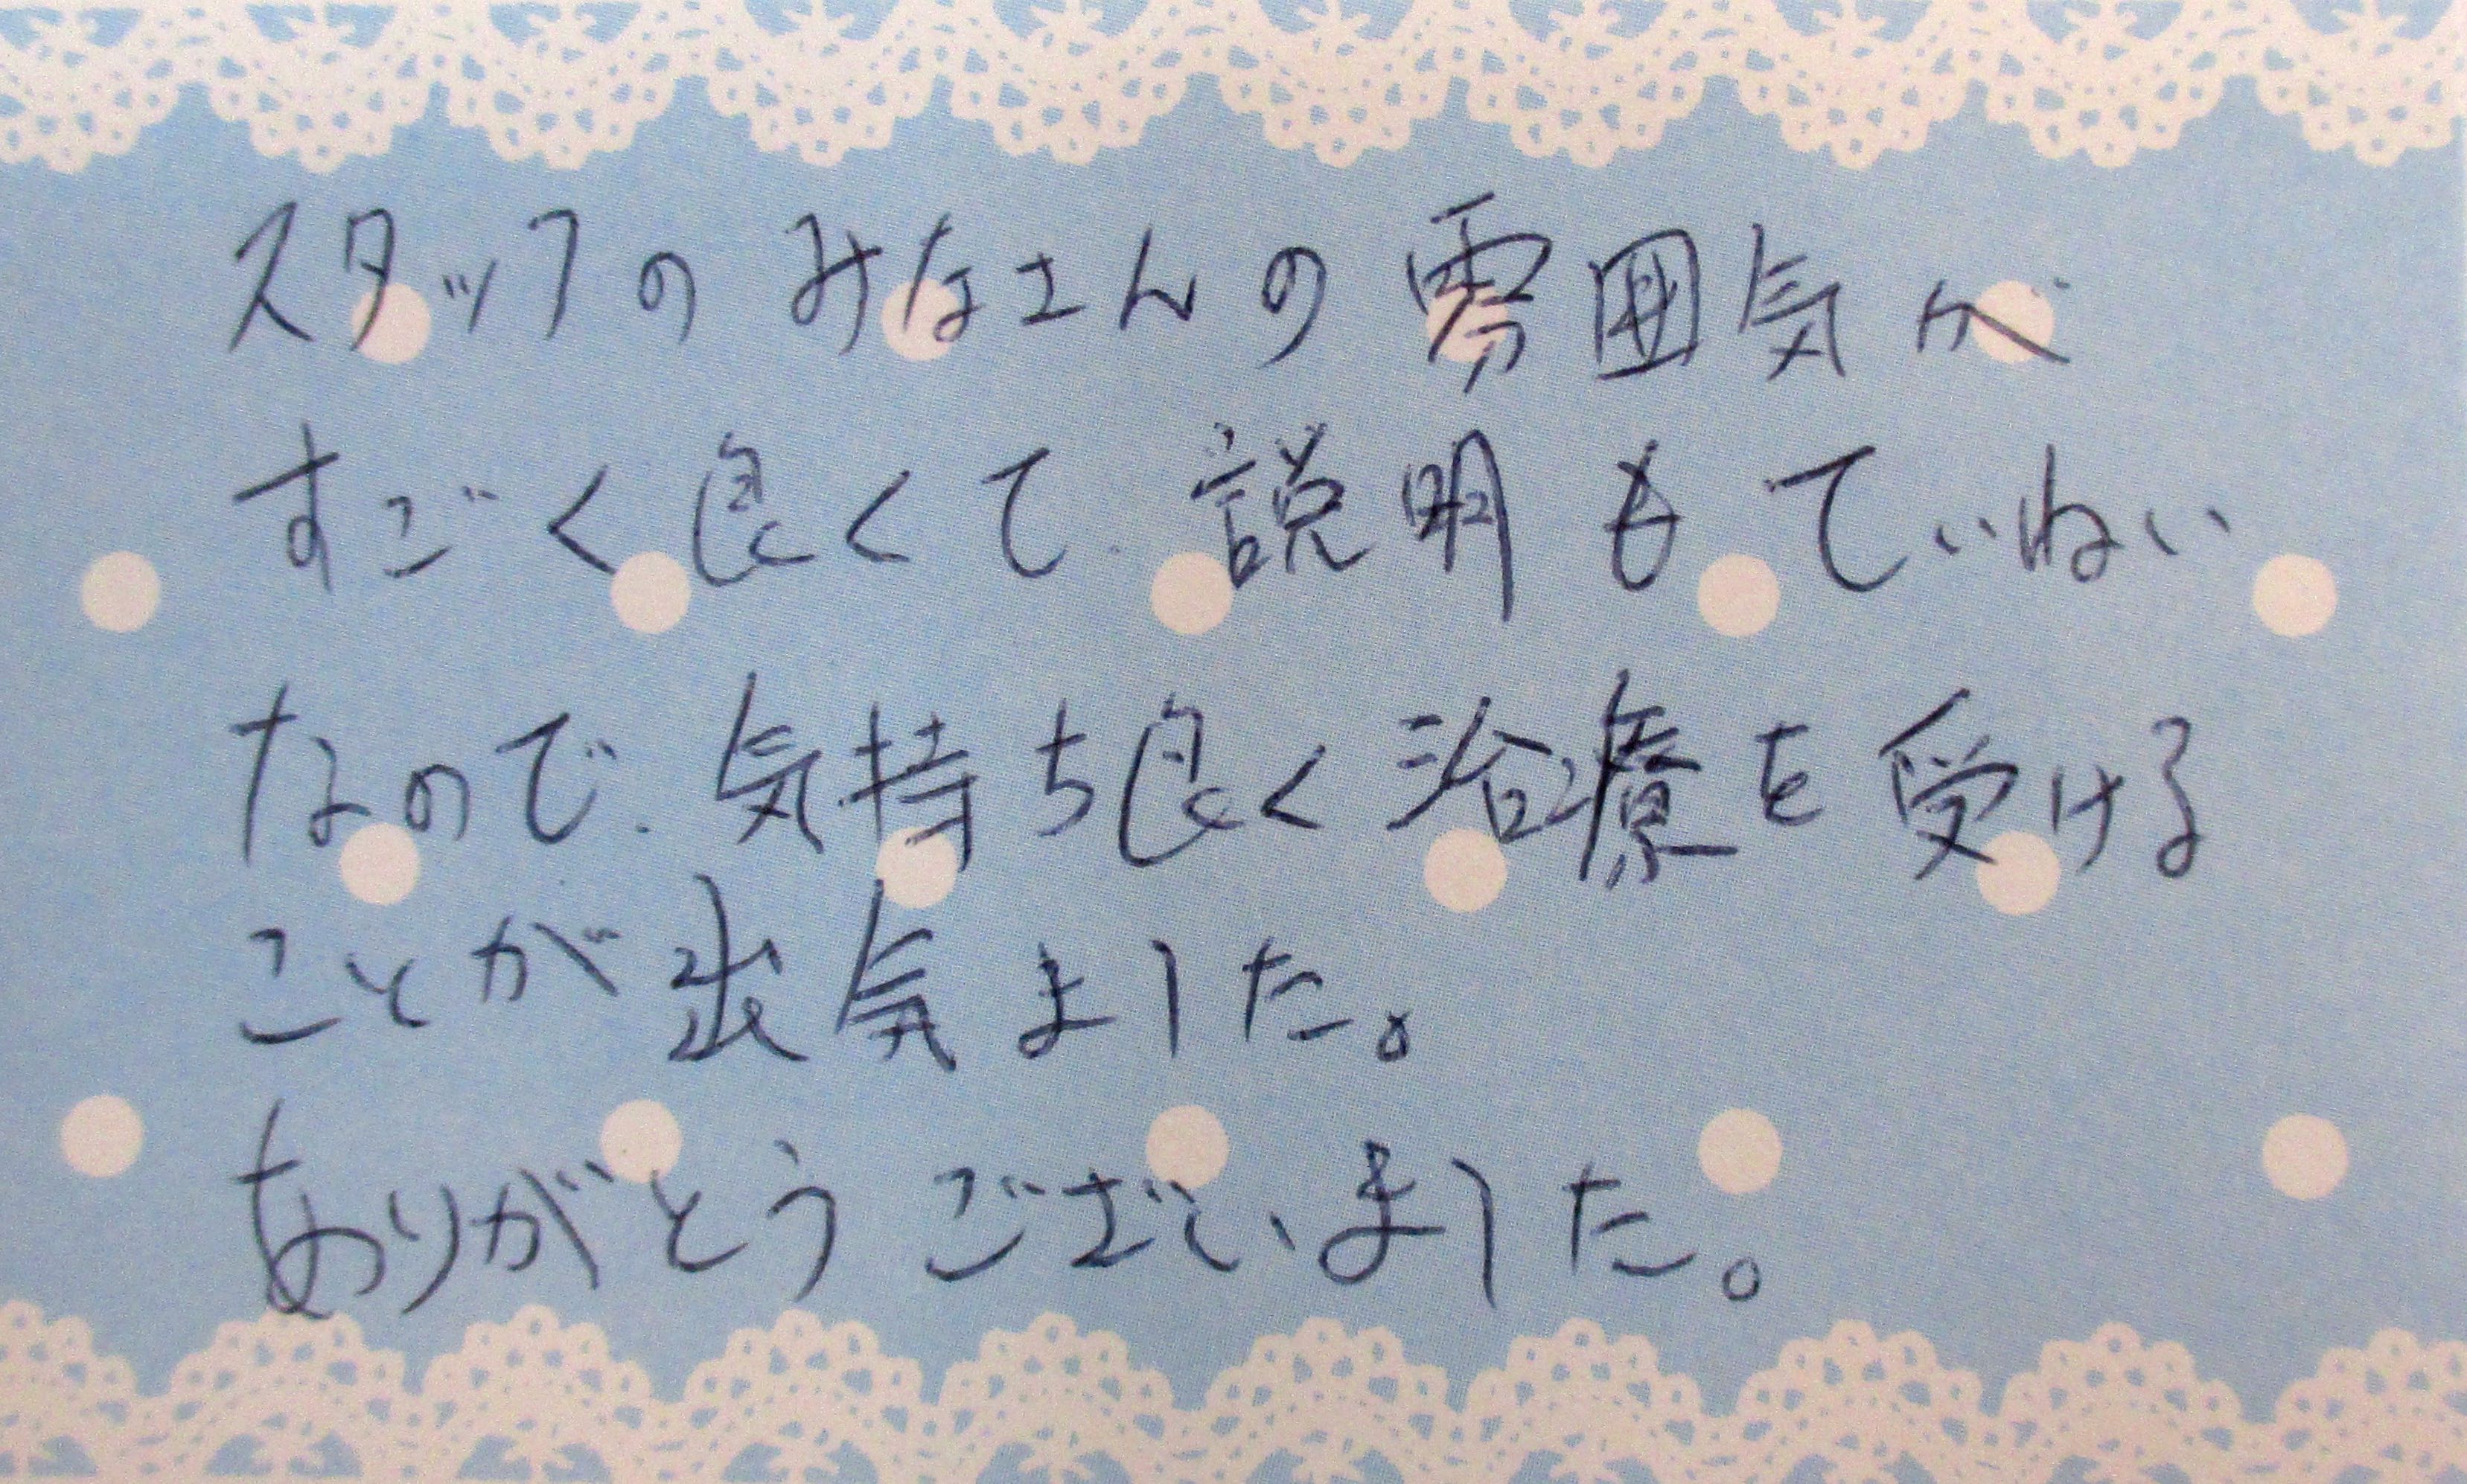 スタッフのみなさんの雰囲気が
すごく良くて、説明もていねい
なので、気持ち良く治療を受ける
ことが出気ました。
ありがとうございました。